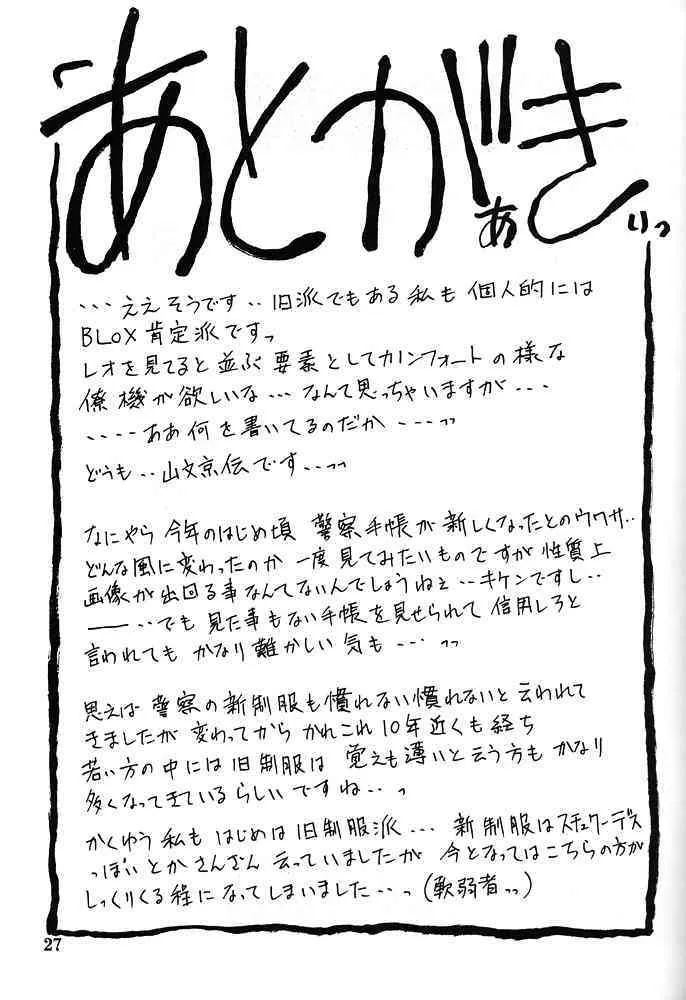 あとがき
あぁ いっ
・・・ええ そうです・・旧派でもある私も 個人的には
BLOX肯定派ですっ
レオを見てると並ぶ要素としてカノンフォートの様な
僚機が欲しいな・・・なんて思っちゃいますが・・・
・・・・ああ何を書いてるのだか ・・・っっ
どうも・・山文京伝です・・っっ
なにやら 今年のはじめ頃 警察手帳が新しくなったとのウワサ・・
どんな風に変わったのか 一度見てみたいものですが 性質上
画像が出回る事なんてないんでしょうねぇ・・キケンですし・・
――・・でも 見た事もない手帳を見せられて 信用しろと
言われても かなり難かしい 気も・・・ っっ
思えば 警察の新制服も慣れない慣れないと 云われて
きましたが 変わってから かれこれ 10年近くも経ち
若い方の中には旧制服は 覚えも薄いと云う方も かなり
多くなってきているらしいですね・・っ
かくゆう 私も はじめは 旧制服派・・・ 新制服はスチュワーデス
っぽいとか さんざん 云っていましたが 今となってはこちらの方が
しっくりくる程になってしまいました・・っ(軟弱者っっ)
27